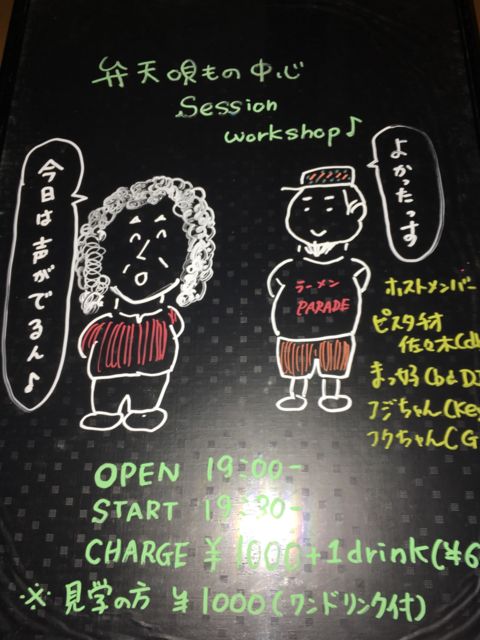 弁天唄もの中心
Session
workshop♪
よかったっす
今日は声がでるん♪
ラーメン
PARADE
ホストメンバー
ピスタチオ
佐々木(dr
まっ好(b&DJ
フジちゃん(Key
フクちゃん(G
OPEN 19:00-
START 19:30-
CHARGE ¥1000+1drink(¥6
※見学の方 ¥1000(ワンドリンク付)